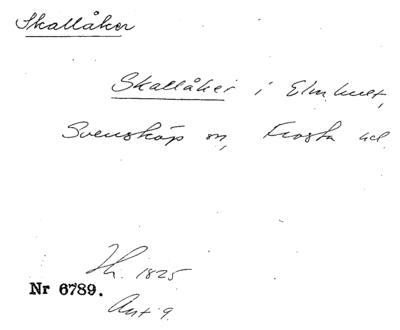 Skallåker
Skallåker i Elmhult,
Svensköp sn, Frosta hd.
Hl. 1825
Nr 6789.
Akt 9.